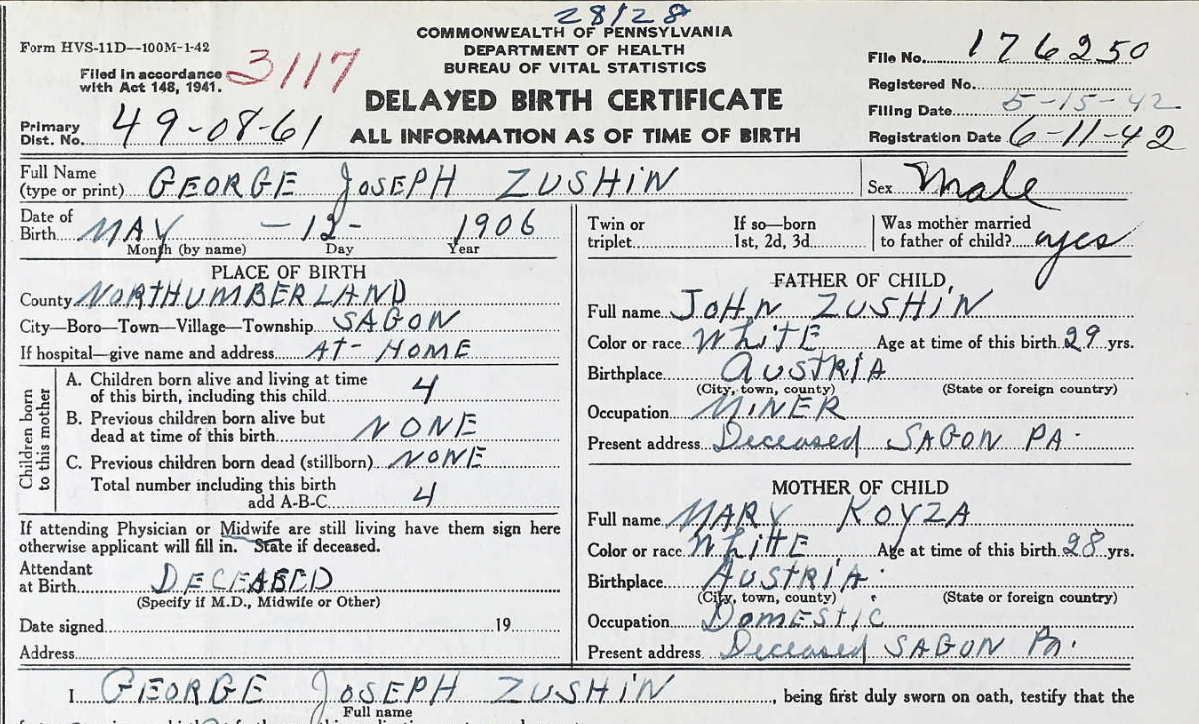 28128
COMMONWEALTH OF PENNSYLVANIA
DEPARTMENT OF HEALTH
BUREAU OF VITAL STATISTICS
DELAYED BIRTH CERTIFICATE
ALL INFORMATION AS OF TIME OF BIRTH
Form HVS-11D—100M-1-42
Filed in accordance
with Act 148, 1941.
3117
Primary
Dist. No. 49-08-61
File No. 176250
Registered No.
Filing Date 5-15-42
Registration Date 6-11-42
Full Name
(type or print) GEORGE JOSEPH ZUSHIN
Sex Male
Date of
Birth MAY -12- 1906
Month (by name) Day Year
Twin or
triplet
If so—born
1st, 2d, 3d
Was mother married
to father of child? yes
PLACE OF BIRTH
County NORTHUMBERLAND
City—Boro—Town—Village—Township SAGON
If hospital—give name and address AT-HOME
Children born
to this mother
A. Children born alive and living at time
of this birth, including this child 4
B. Previous children born alive but
dead at time of this birth NONE
C. Previous children born dead (stillborn) NONE
Total number including this birth
add A-B-C 4
If attending Physician or Midwife are still living have them sign here
otherwise applicant will fill in. State if deceased.
Attendant
at Birth DECEASED
(Specify if M.D., Midwife or Other)
Date signed 19
Address
FATHER OF CHILD
Full name JOHN ZUSHIN
Color or race WHITE Age at time of this birth 29 yrs.
Birthplace AUSTRIA
(City, town, county) (State or foreign country)
Occupation MINER
Present address Deceased SAGON PA.
MOTHER OF CHILD
Full name MARY KOYZA
Color or race WHITE Age at time of this birth 28 yrs.
Birthplace AUSTRIA
(City, town, county) (State or foreign country)
Occupation DOMESTIC
Present address Deceased SAGON PA.
I GEORGE JOSEPH ZUSHIN, being first duly sworn on oath, testify that the
Full name